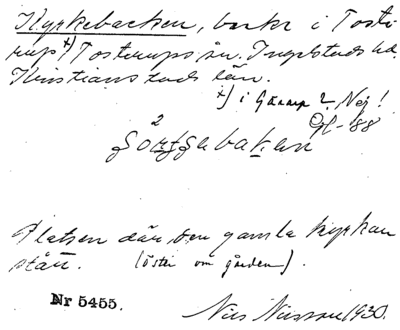 Kyrkebacken, backe i Toste-
rup x) Tosterups sn. Ingelstads hd.
Kristianstads län.
x) i Gärarp? Nej!
GH-88
2
Platsen där den gamla kyrkan
stått. (öster om gården).
Nr 5455.
Nils Nilsson 1930.